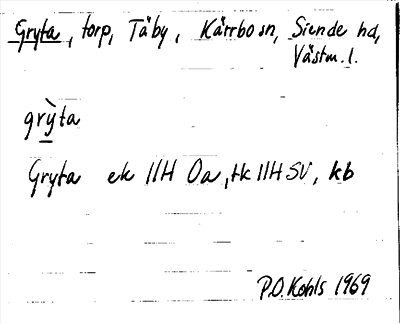 Gryta, torp, Täby, Kärrbo sn, Siende hd,
Västm. l.
grỳta
Gryta ek 11H Oa, tk 11H SV, kb
P.O. Kohls 1969